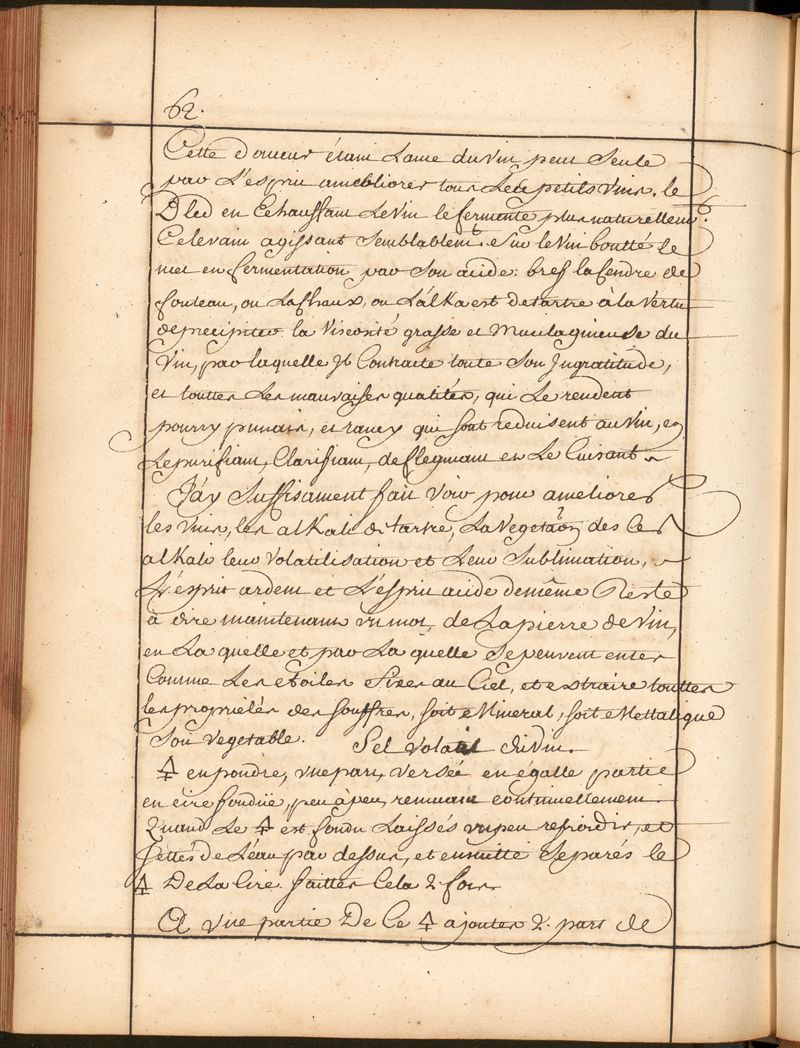 62.
Cette douceur étant Lame du Vin peut Seule
par L'esprit ameliorer tous Les petits Vins. le
Bled en Echauffant Le Vin le fermente plus naturellem.t
Ce levain agissant Semblablem.t Sur le Vin boutté Le
met en fermentation par Son acide: bref la Cendre de
fouteau, ou La Chaux, ou L'alKaest de tartre à la Vertu
de precipiter la Viscosité grasse et Mucilagineuse du
Vin, par laquelle Il Contracte toute Son Ingratitude,
et touttes Les mauvaises qualités, qui Le rendent
pourry punais, et rancy qui sont reduisent au Vin, en
Le purifiant, Clarifiant, deflegmant et Le Cuisant
J'ay Suffisament fait Voir pour ameliorer
les Vins, les alKali de tartre, La Vegetaõn des Ces
alKali leur Volatilisation et Leur Sublimation,
L'esprit ardent et L'esprit acide de même Reste
à dire maintenant un mot, de La pierre de Vin,
en La quelle et par La quelle Se peuvent enter
Comme Les etoiles fixes au Ciel, et extraire touttes
les proprietés des Souffres, soit Mineral, soit Mettalique
Soit Vegetable. Sel Volatil
🜍 en poudre, une part, Versée en égalle partie
en cire fondüe, peu à peu, remuant continuellement.
Quand Le 🜍 est fondu Laissés un peu refroidir, et
Jettés de L'eau par dessus, et ensuitte Separés le
🜍 De La Cire. faittes Cela 2 fois.
A Une partie De Ce 🜍 ajoutes 2. part de